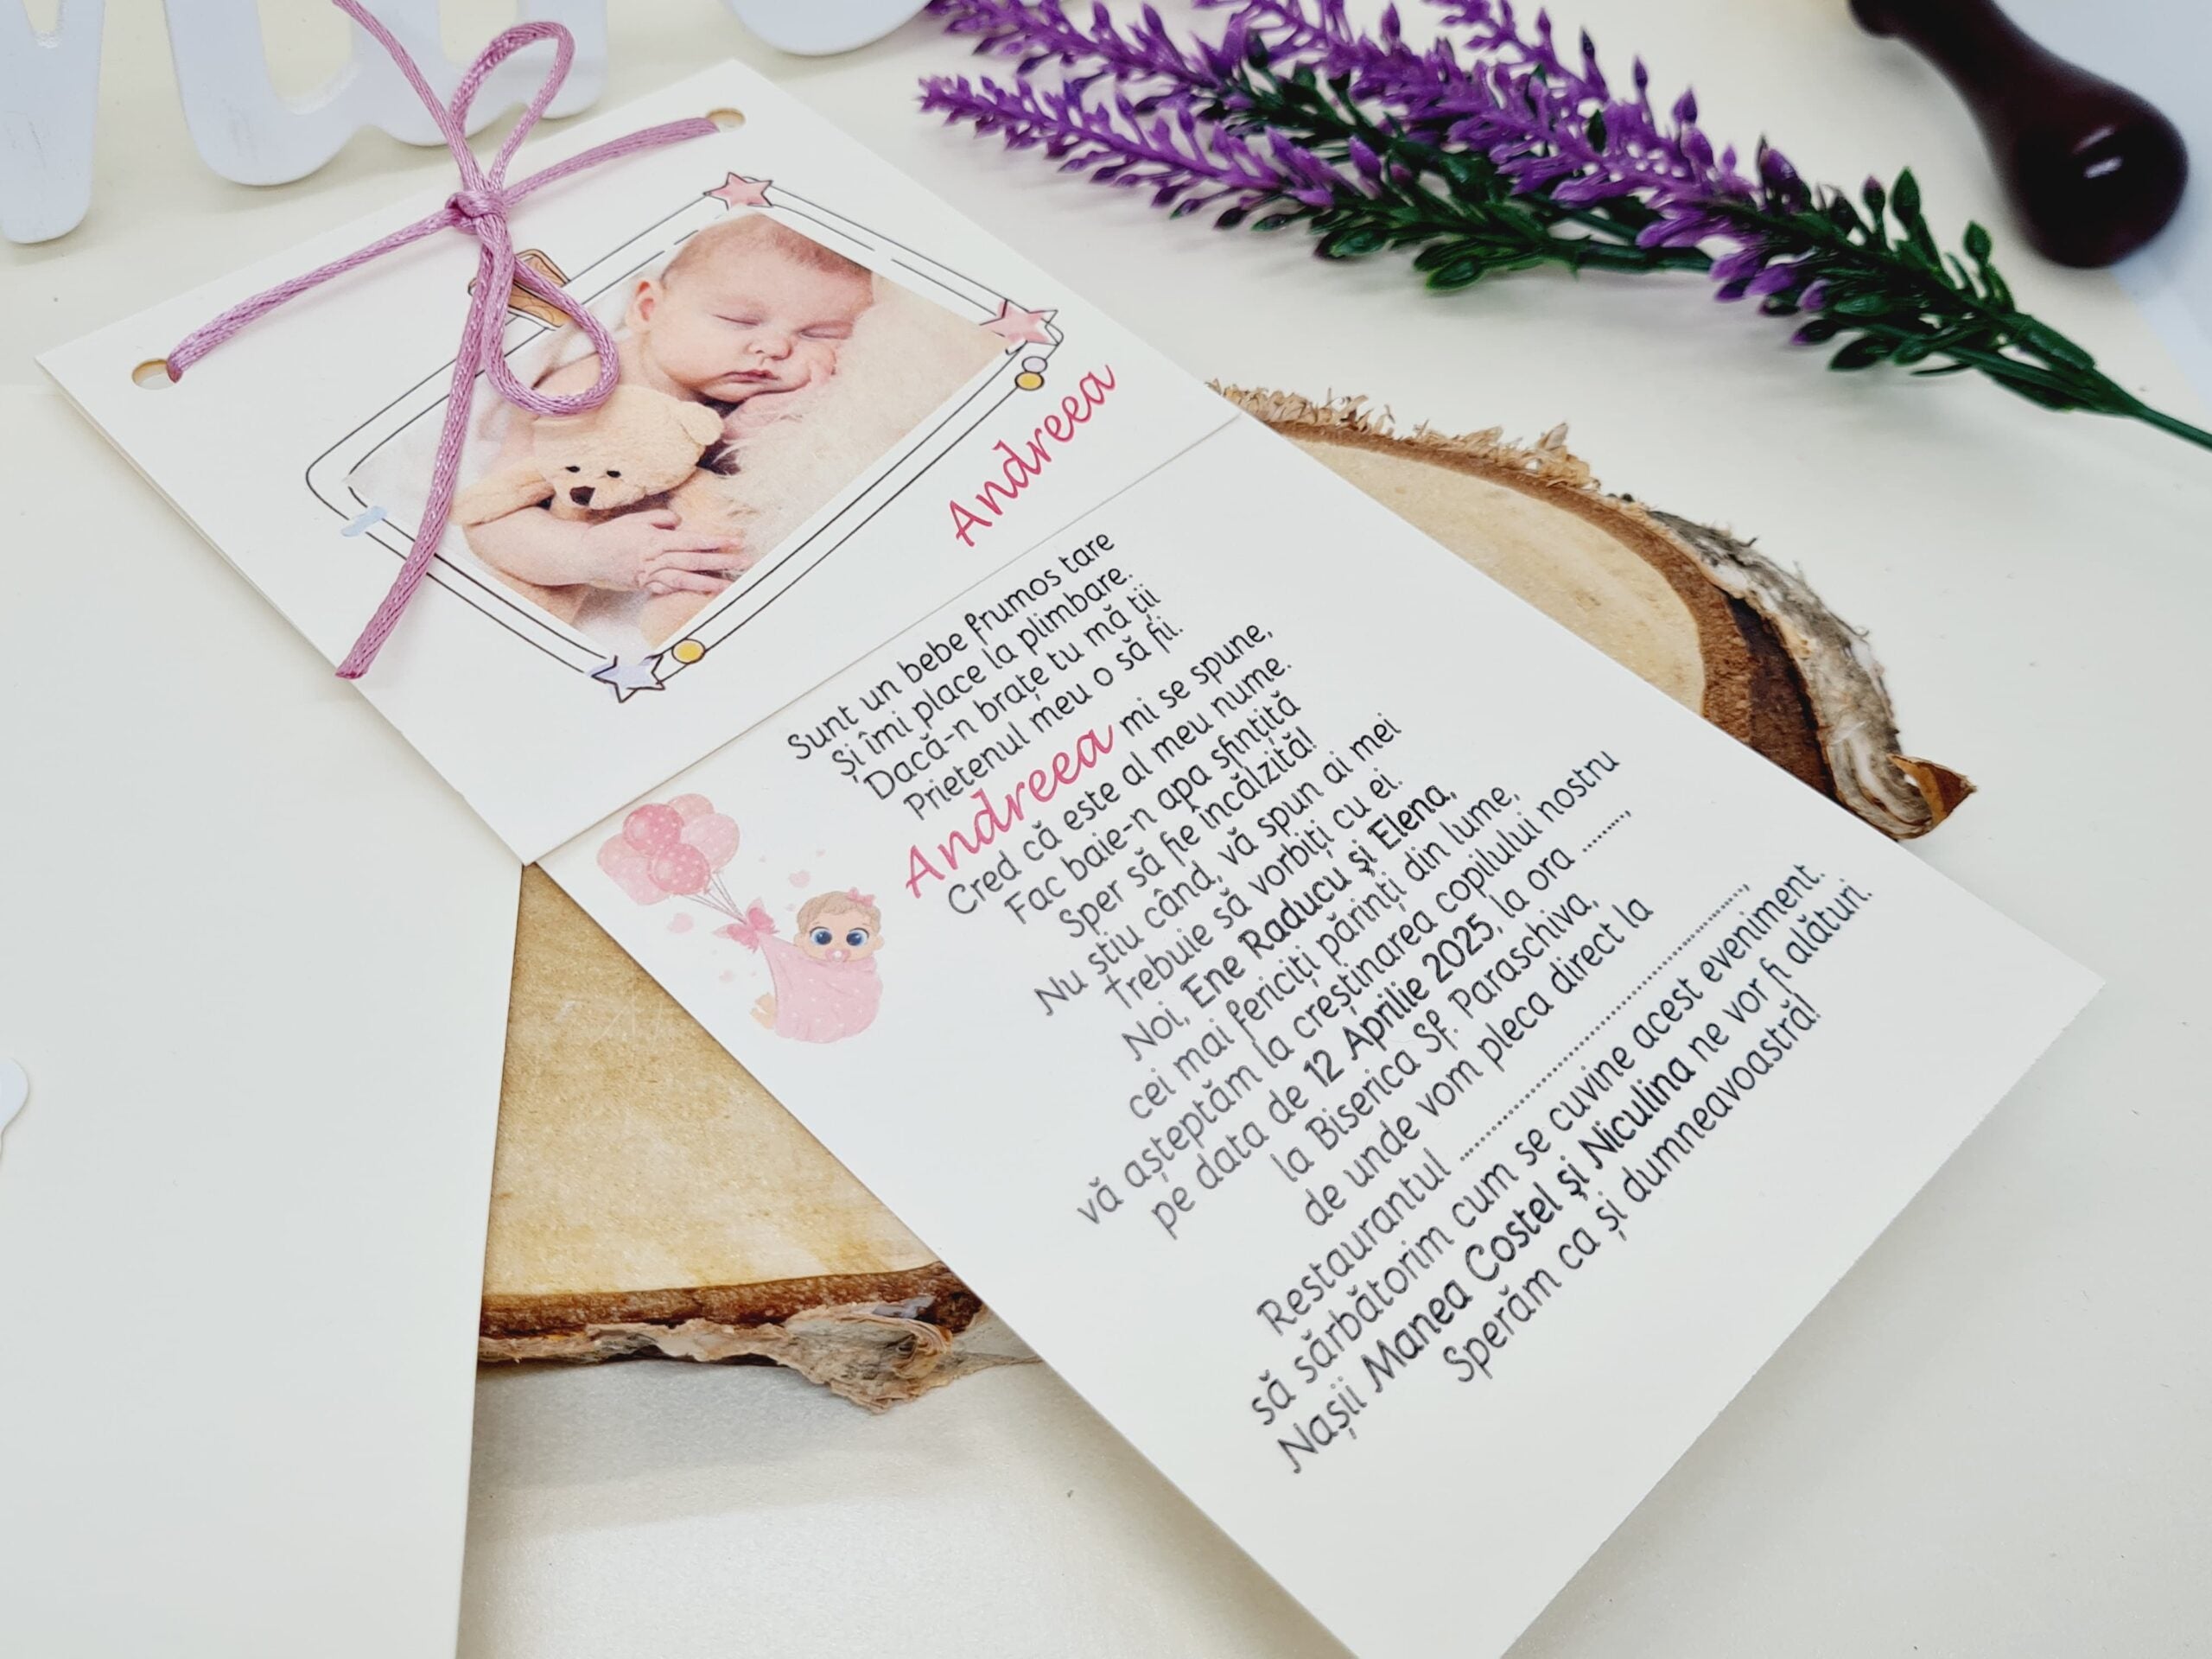 Andreea
Sunt un bebe frumos tare
Și îmi place la plimbare.
Dacă-n brațe tu mă ții
Prietenul meu o să fii.
Andreea mi se spune,
Cred că este al meu nume.
Fac baie-n apa sfințită
Sper să fie încălzită!
Nu știu când, vă spun ai mei
Trebuie să vorbiți cu ei.
Noi, Ene Raducu și Elena,
cei mai fericiți părinți din lume,
vă așteptăm la creștinarea copilului nostru
pe data de 12 Aprilie 2025, la ora ........,
la Biserica Sf. Paraschiva,
de unde vom pleca direct la
Restaurantul ..................................................,
să sărbătorim cum se cuvine acest eveniment.
Nașii Manea Costel și Niculina ne vor fi alături.
Sperăm ca și dumneavoastră!